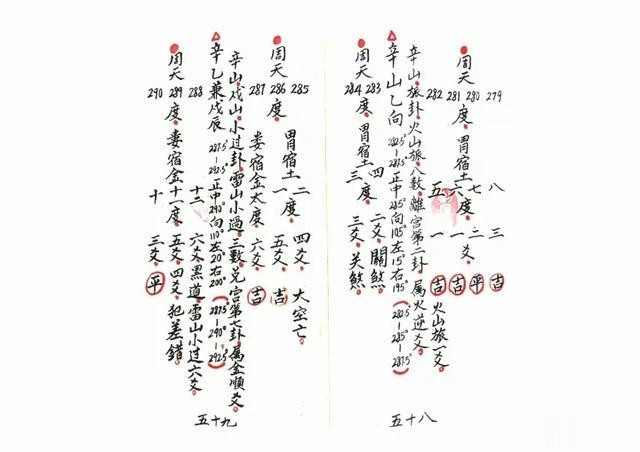 周天 282 281 280 279 度。胃宿土五六七八度。一一二三爻。吉吉平吉 火山旅一爻
辛山。旅卦。火山旅。八数。離宮第二卦。属火逆爻。
辛山乙向 282.5°-287.5°正中285°向105°左15°右195°(282.5-285°-287.5°)
周天 284 283 度。胃宿土三四度。三爻。二爻。关煞。關煞
五十八
周天 287 286 285 度。胃宿土一二度。婁宿金太度。六爻。五爻。四爻。吉 吉 大空亡。
辛山。戌山。小过卦。雷山小過。三数。兑宫第七卦。属金順爻。
辛乙兼戌辰 287.5°-292.5°正中290°向110°左20°右200°(287.5-290°-292.5)
周天 290 289 288 度。婁宿金十十一十二度。三爻。五爻。六爻。四爻。平 犯差錯。黑道。雷山小过六爻
五十九